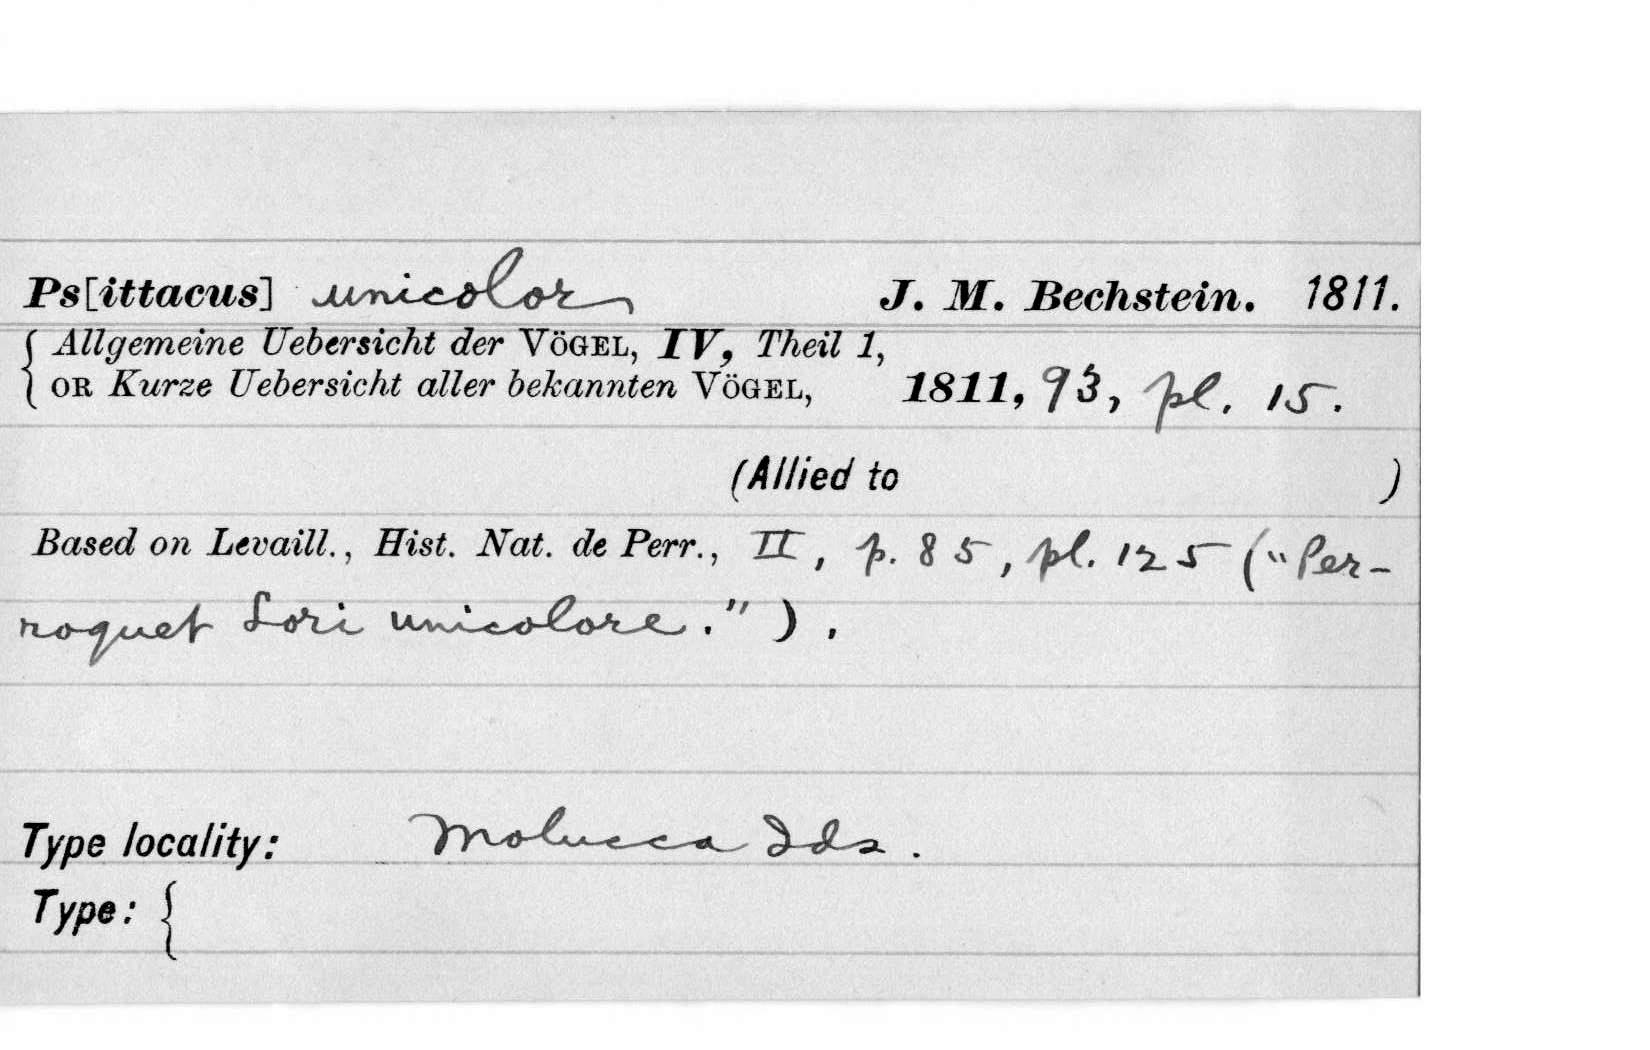 Ps[ittacus] unicolor J. M. Bechstein. 1811.
{ Allgemeine Uebersicht der VÖGEL, IV, Theil 1,
OR Kurze Uebersicht aller bekannten VÖGEL, 1811, 93, pl. 15.
(Allied to )
Based on Levaill., Hist. Nat. de Perr., II, p. 85, pl. 125 ("Per-
roquet Lori unicolore.").
Type locality: Molucca Ids.
Type: {